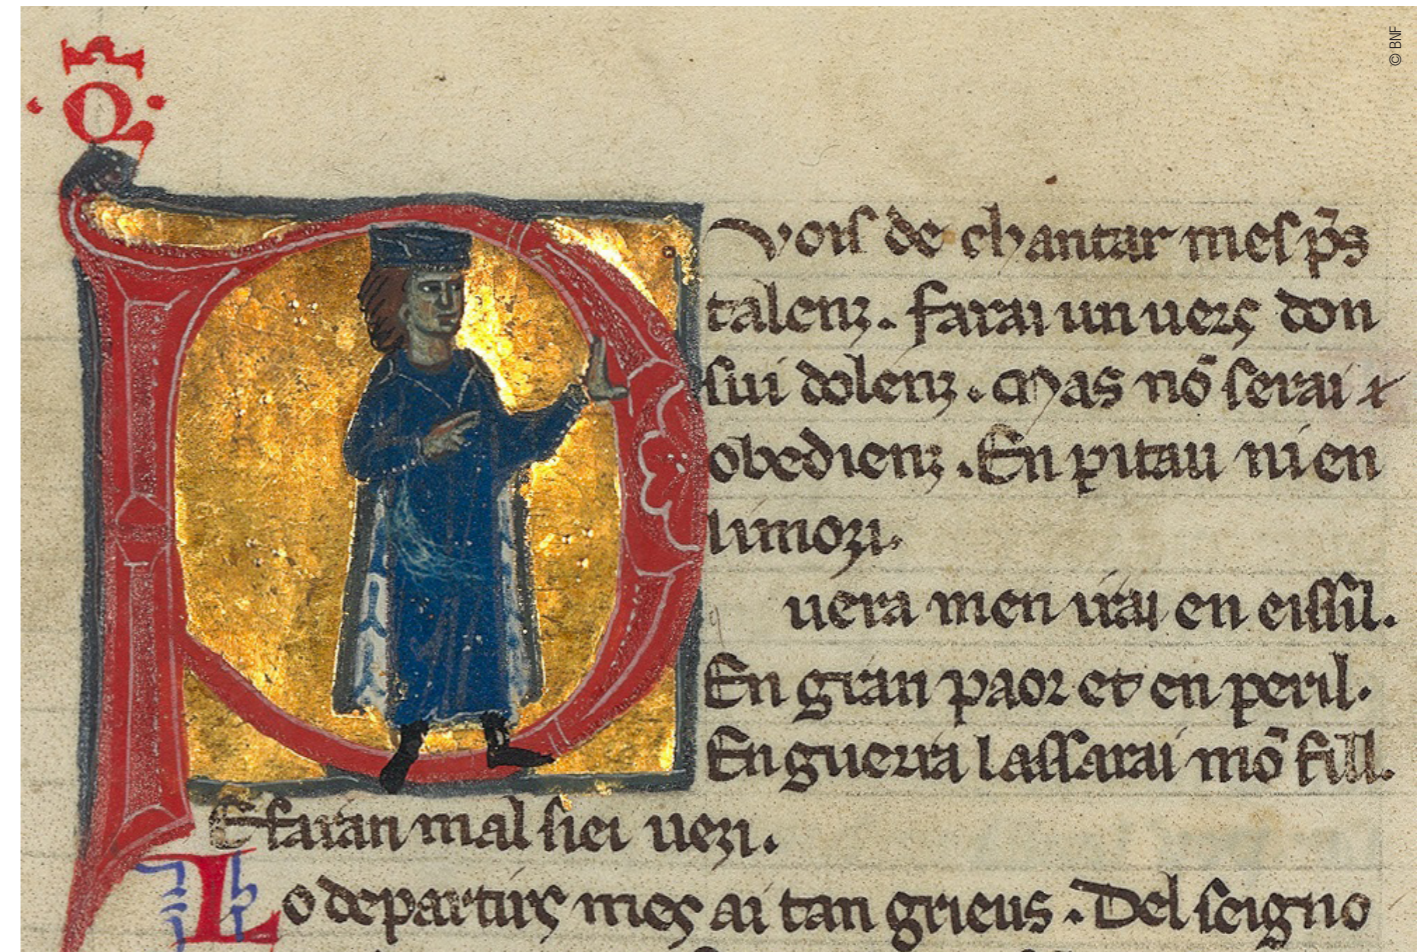 © BNF
P
vois de chantar mes p̃s
talenz. farai un uers don
sui dolenz. Mas nõ serai
obedienz. En pitau ni en
limozi.
uera men irai en eissil.
En gran paor et en peril.
En guerra lassarai mõ fill.
E faran mal siei uezi.
Lo departirs mes ai tan grieus. Del seigno